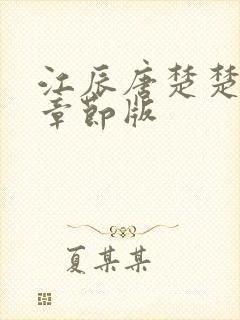 江辰唐楚楚
章节版
夏某某